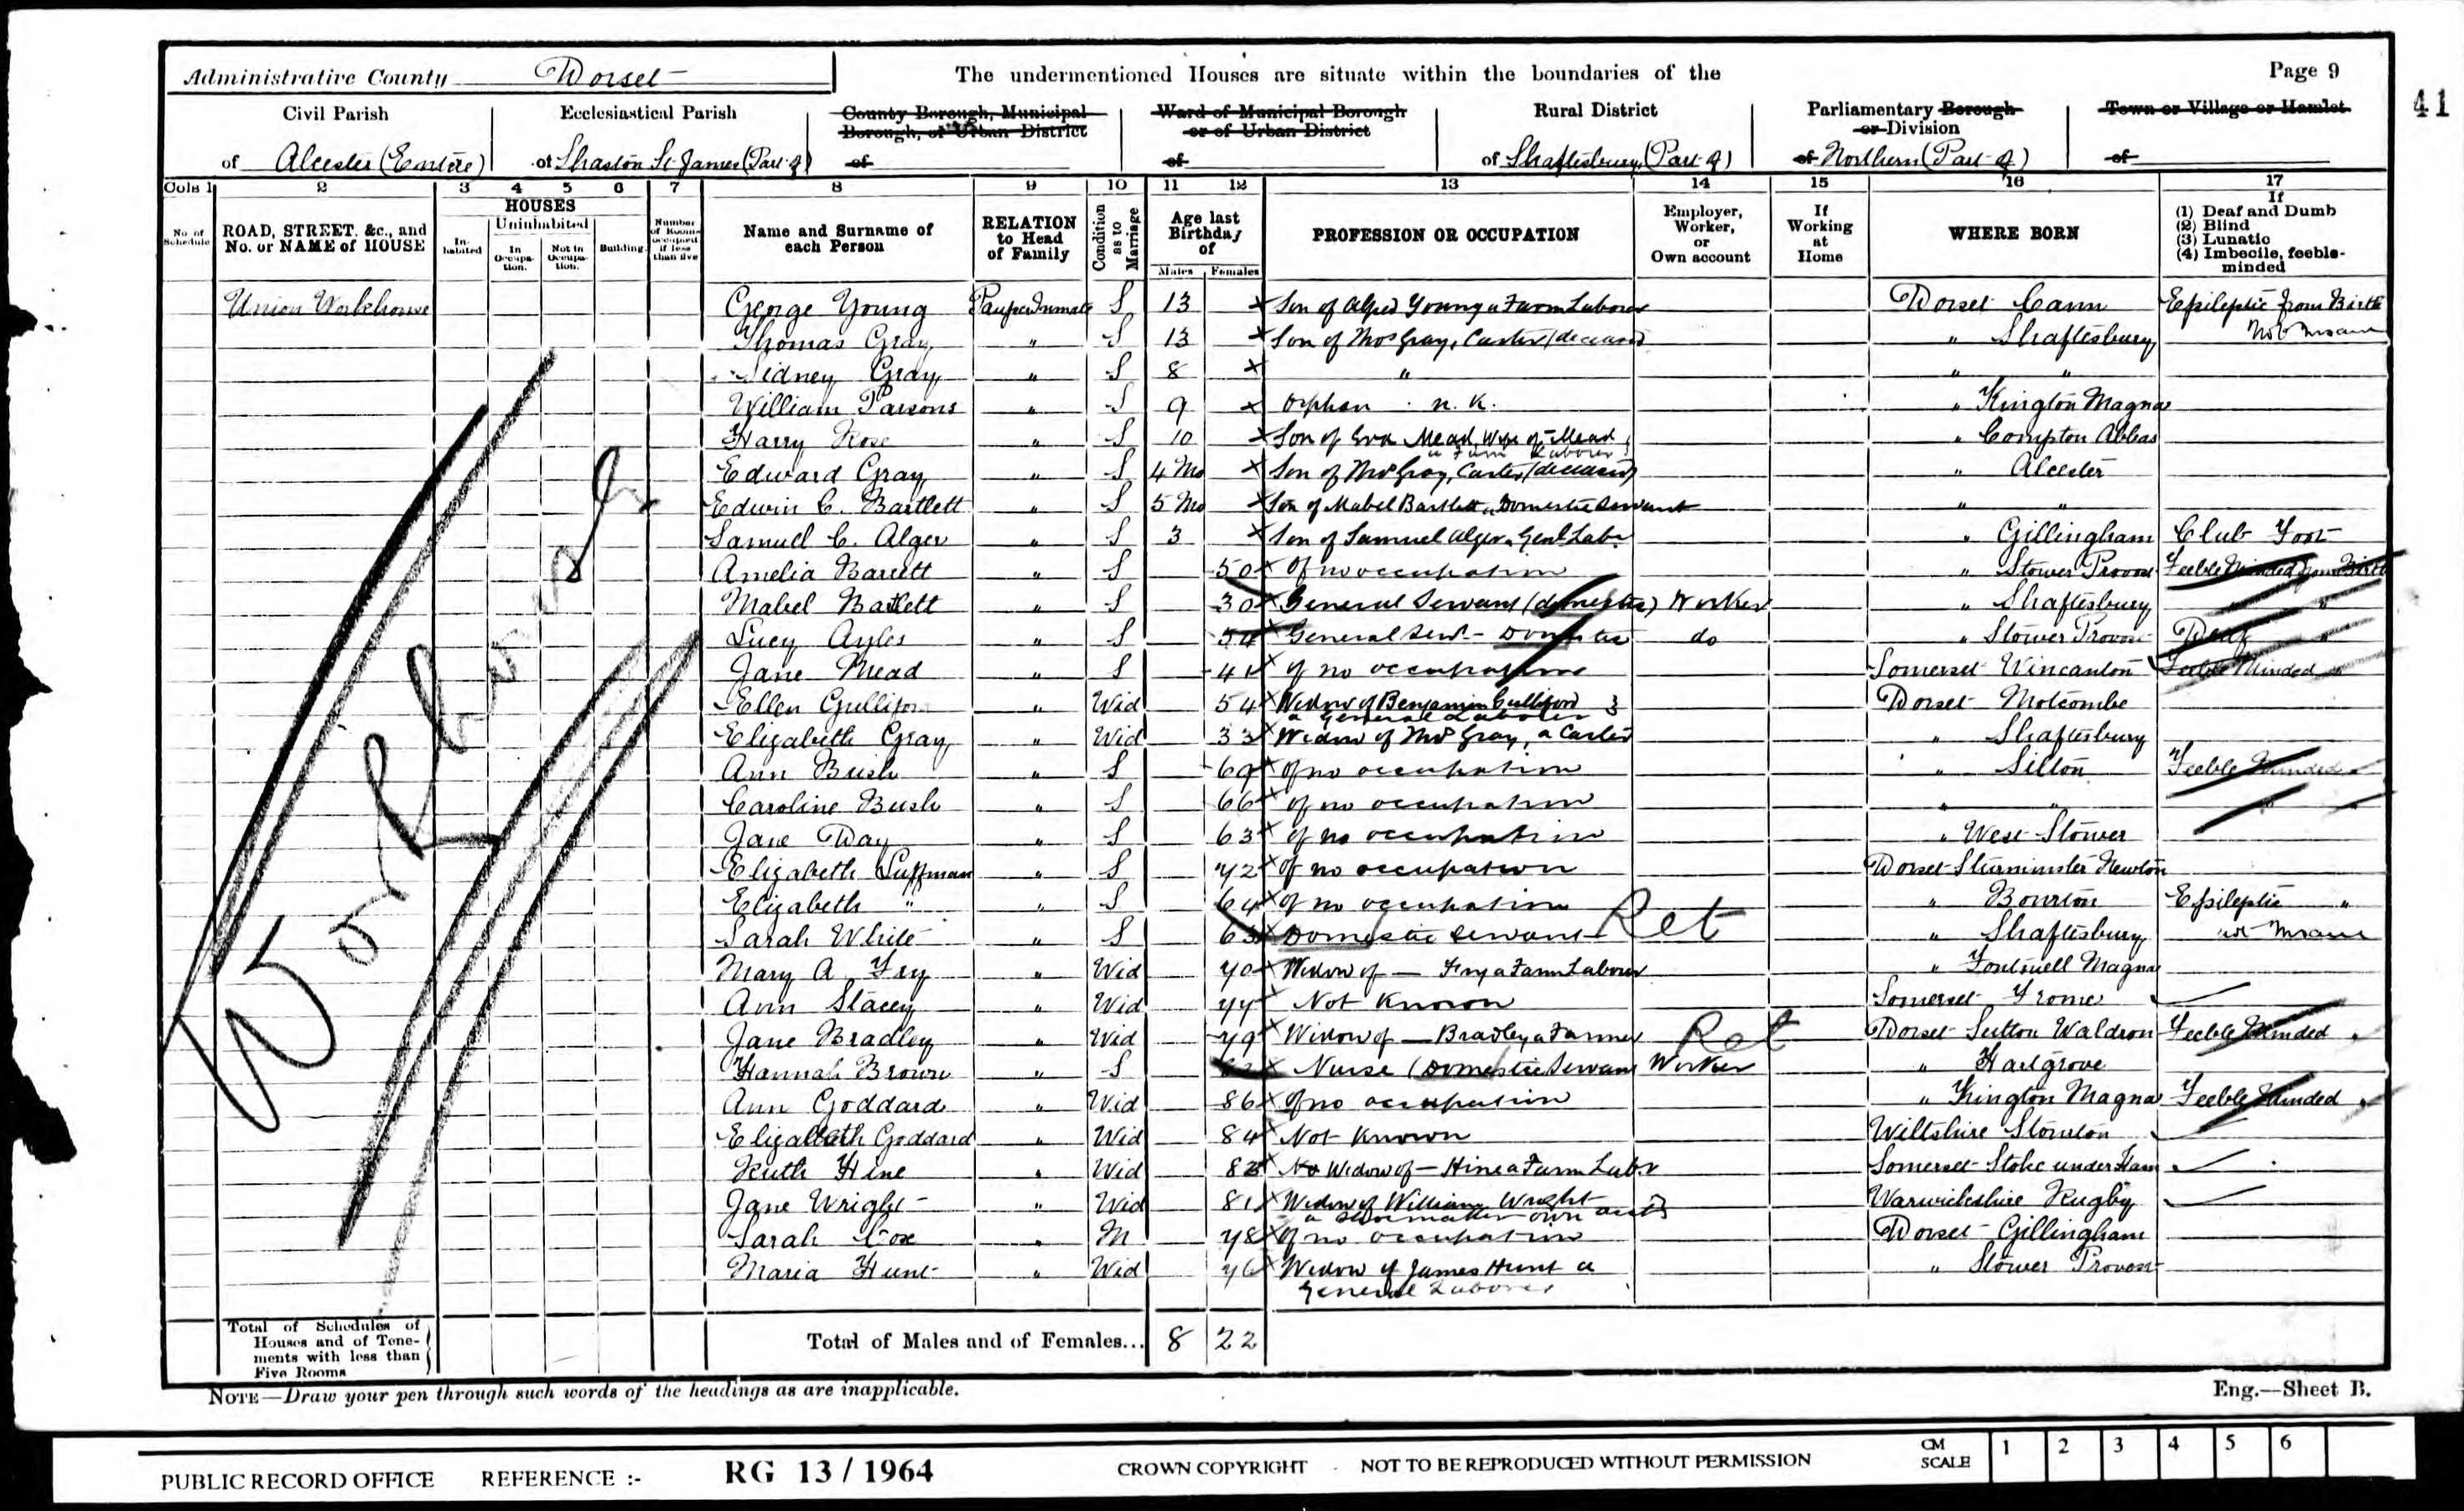 Administrative County Dorset
The undermentioned Houses are situate within the boundaries of the
Page 9
41
Civil Parish
of Alcester (Entire)
Ecclesiastical Parish
of Shaston St James (Part of)
County Borough, Municipal Borough, or Urban District
of
Ward of Municipal Borough or of Urban District
of
Rural District
of Shaftesbury (Part of)
Parliamentary Borough or Division
of Northern (Part of)
Town or Village or Hamlet
of
Cols 1 2 3 4 5 6 7 8 9 10 11 12 13 14 15 16 17
No. of Schedule
ROAD, STREET, &c., and No. or NAME of HOUSE
HOUSES
Inhabited
Uninhabited
In Occupation.
Not in Occupation.
Building
Number of Rooms occupied if less than five
Name and Surname of each Person
RELATION to Head of Family
Condition as to Marriage
Age last Birthday of
Males Females
PROFESSION OR OCCUPATION
Employer, Worker, or Own account
If Working at Home
WHERE BORN
If
(1) Deaf and Dumb
(2) Blind
(3) Lunatic
(4) Imbecile, feeble-minded
Union Workhouse George Young Pauper Inmate S 13 x Son of Alfred Young a Farm Labourer Dorset Cann Epileptic from Birth
Thomas Gray " S 13 x Son of Thos Gray, Carter (deceased) " Shaftesbury Not Insane
Sidney Gray " S 8 x " " "
William Parsons " S 9 x Orphan . n. k. " Kington Magna
Harry Rose " S 10 x Son of Eva Mead, Wife of - Mead a Farm Labourer " Compton Abbas
Edward Gray " S 4 Mo x Son of Thos Gray, Carter (deceased) " Alcester
Edwin C. Bartlett " S 5 Mo x Son of Mabel Bartlett, Domestic Servant " "
Samuel C. Alger " S 3 x Son of Samuel Alger, Genl Labr " Gillingham Club Foot
Amelia Barrett " S 50 x Of no occupation " Stower Provost Feeble Minded from Birth
Mabel Bartlett " S 30 x General Servant (domestic) Worker " Shaftesbury " "
Lucy Ayles " S 54 General Servt - Domestic do " Stower Provost Deaf "
Jane Mead " S 41 x of no occupation Somerset Wincanton Feeble Minded "
Ellen Gulliford " Wid 54 x Widow of Benjamin Gulliford a General Labourer Dorset Motcombe
Elizabeth Gray " Wid 33 x Widow of Thos Gray, a Carter " Shaftesbury
Ann Bush " S 69 x Of no occupation " Silton Feeble Minded "
Caroline Bush " S 66 x of no occupation " " " "
Jane Day " S 63 x of no occupation " West Stower
Elizabeth Luffman " S 72 x Of no occupation Dorset Sturminster Newton
Elizabeth " " S 64 x of no occupation " Bourton Epileptic "
Sarah White " S 63 x Domestic Servant Ret " Shaftesbury not Insane
Mary A Fry " Wid 70 x Widow of — Fry a Farm Labourer " Fontmell Magna
Ann Stacey " Wid 77 x Not Known Somerset Frome
Jane Bradley " Wid 79 x Widow of — Bradley a Farmer Ret Dorset Sutton Waldron Feeble Minded "
Hannah Brown " S Nurse (Domestic Servant Worker " Hartgrove
Ann Goddard " Wid 86 x Of no occupation " Kington Magna Feeble Minded "
Elizabeth Goddard " Wid 84 x Not Known Wiltshire Stourton
Ruth Hine " Wid 82 x Widow of — Hine a Farm Labr Somerset Stoke under Ham
Jane Wright " Wid 81 x Widow of William Wright a Shoemaker own acct Warwickshire Rugby
Sarah Cox " M 78 x Of no occupation Dorset Gillingham
Maria Hunt " Wid 76 x Widow of James Hunt a General Labourer " Stower Provost
Workhouse
Total of Schedules of Houses and of Tenements with less than Five Rooms
Total of Males and of Females... 8 22
NOTE—Draw your pen through such words of the headings as are inapplicable.
Eng.—Sheet B.
PUBLIC RECORD OFFICE REFERENCE :- RG 13 / 1964 CROWN COPYRIGHT - NOT TO BE REPRODUCED WITHOUT PERMISSION CM SCALE 1 2 3 4 5 6